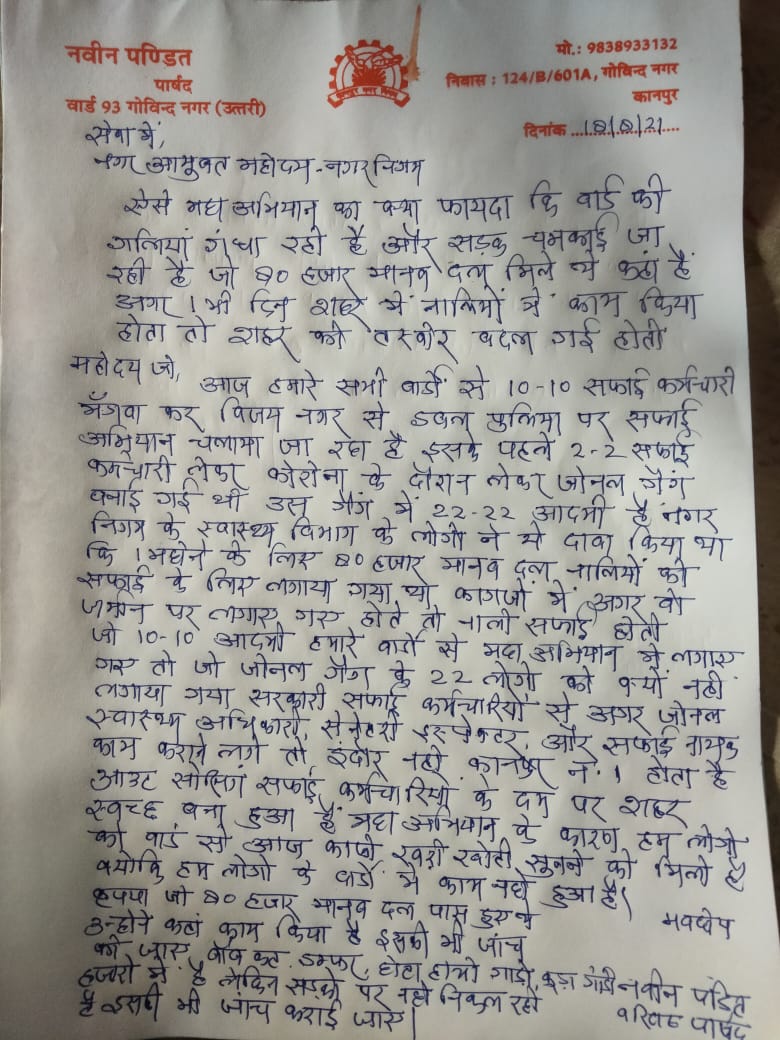 नवीन पण्डित
पार्षद
वार्ड 93 गोविन्द नगर (उत्तरी)
मो.: 9838933132
निवास : 124/B/601A, गोविन्द नगर
कानपुर
दिनांक ...18/8/21....
सेवा में,
नगर आयुक्त महोदय - नगर निगम
ऐसे महा अभियान का क्या फायदा कि वार्ड की
गलियां गंधा रही है और सड़क चमकाई जा
रही है जो 80 हजार मानव दल मिले थे कहां है
अगर 1 भी दिन शहर में नालियों में काम किया
होता तो शहर की तस्वीर बदल गई होती
महोदय जी, आज हमारे सभी वार्डो से 10-10 सफाई कर्मचारी
मँगवा कर विजय नगर से डबल पुलिया पर सफाई
अभियान चलाया जा रहा है इसके पहले 2-2 सफाई
कर्मचारी लेकर कोरोना के दौरान लेकर जोनल गैंग
बनाई गई थी उस गैंग में 22-22 आदमी है नगर
निगम के स्वास्थ्य विभाग के लोगो ने ये दावा किया था
कि 1 महीने के लिए 80 हजार मानव दल नालियों की
सफाई के लिए लगाया गया था कागजों में अगर वो
जमीन पर लगाए गए होते तो नाली सफाई होती
जो 10-10 आदमी हमारे वार्डो से महा अभियान में लगाए
गए तो जो जोनल गैंग के 22 लोगो को क्यों नही
लगाया गया सरकारी सफाई कर्मचारियों से अगर जोनल
स्वास्थ्य अधिकारी, सेनेटरी इंस्पेक्टर, और सफाई नायक
काम कराने लगे तो इंदौर नही कानपुर नं. 1 होता है
आउट सोर्सिंग सफाई कर्मचारियों के दम पर शहर
स्वच्छ बना हुआ है महा अभियान के कारण हम लोगो
को वार्ड से आज काफी खरी खोटी सुनने को मिली है
क्योकि हम लोगो के वार्डो में काम नही हुआ है।
कृपया जो 80 हजार मानव दल पास हुए थे
उन्होने कहां काम किया है इसकी भी जांच
की जाए, डम्फर, छोटा हाथी गाडी, कूड़ा गाडी
हजारो में है लेकिन सड़को पर नही निकल रही
है इसकी भी जांच कराई जाए।
भवदीय
नवीन पंडित
वरिष्ठ पार्षद